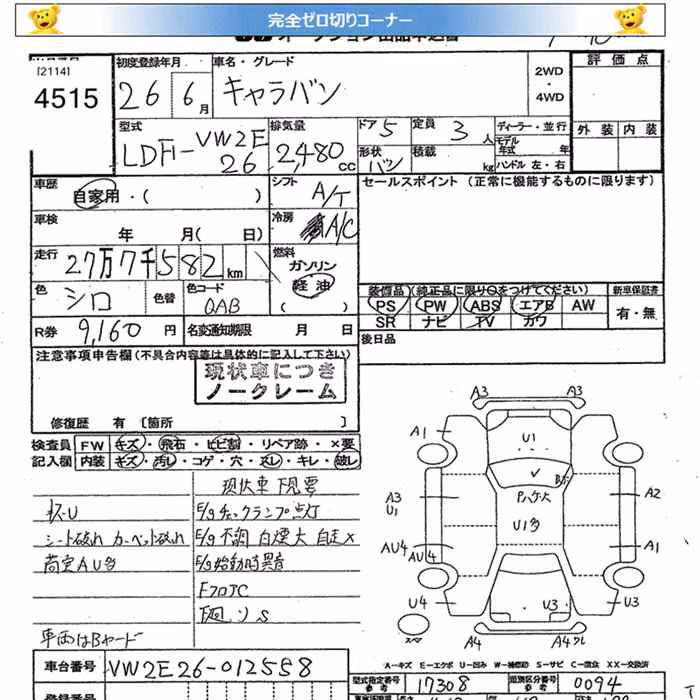 完全ゼロ切りコーナー
[2114]
4515
初度登録年月
26 6月
車名・グレード
キャラバン
2WD
・
4WD
評価点
外装 内装
型式
LDFi-VW2E26
排気量
2,480cc
ドア 5
形状 バン
定員 3人
積載 kg
ディーラー・並行
モデル年式 年
ハンドル 左・右
車歴
自家用・( )
シフト A/T
セールスポイント (正常に機能するものに限ります)
車検 年 月( 日)
冷房 A/C
走行
27万7千582km
燃料
ガソリン
軽油
( )
色 シロ 色替
色コード QAB
装備品 (純正品に限り○をつけてください)
PS PW ABS エアB AW
SR ナビ TV カワ
新車保証書
有・無
R券 9,160円
名変通知期限 月 日
後日品
注意事項申告欄 (不具合内容等は具体的に記入して下さい)
現状車につき
ノークレーム
修復歴 有 [箇所 ]
検査員 FW キズ・飛石・ヒビ割・リペア跡・×要
記入欄 内装 キズ・汚レ・コゲ・穴・スレ・キレ・破レ
現状車 下見要
E/gチェックランプ点灯
シート破れ カーペット破れ
E/g不調 白煙大 自走×
荷室AU多
E/g始動時異音
FフロアC
下廻りS
車両はBヤード
A3 A3
A1
U1
A3
U1
A2
U1多
AU4
AU4
A1
U4
U3
U3
A4
A4
車台番号
VW2E26-012558
A-キズ E-エクボ U-凹み W-補修跡 S-サビ C-腐食 XX-交換済
型式指定番号
参考
17308
類別区分番号
参考
0094